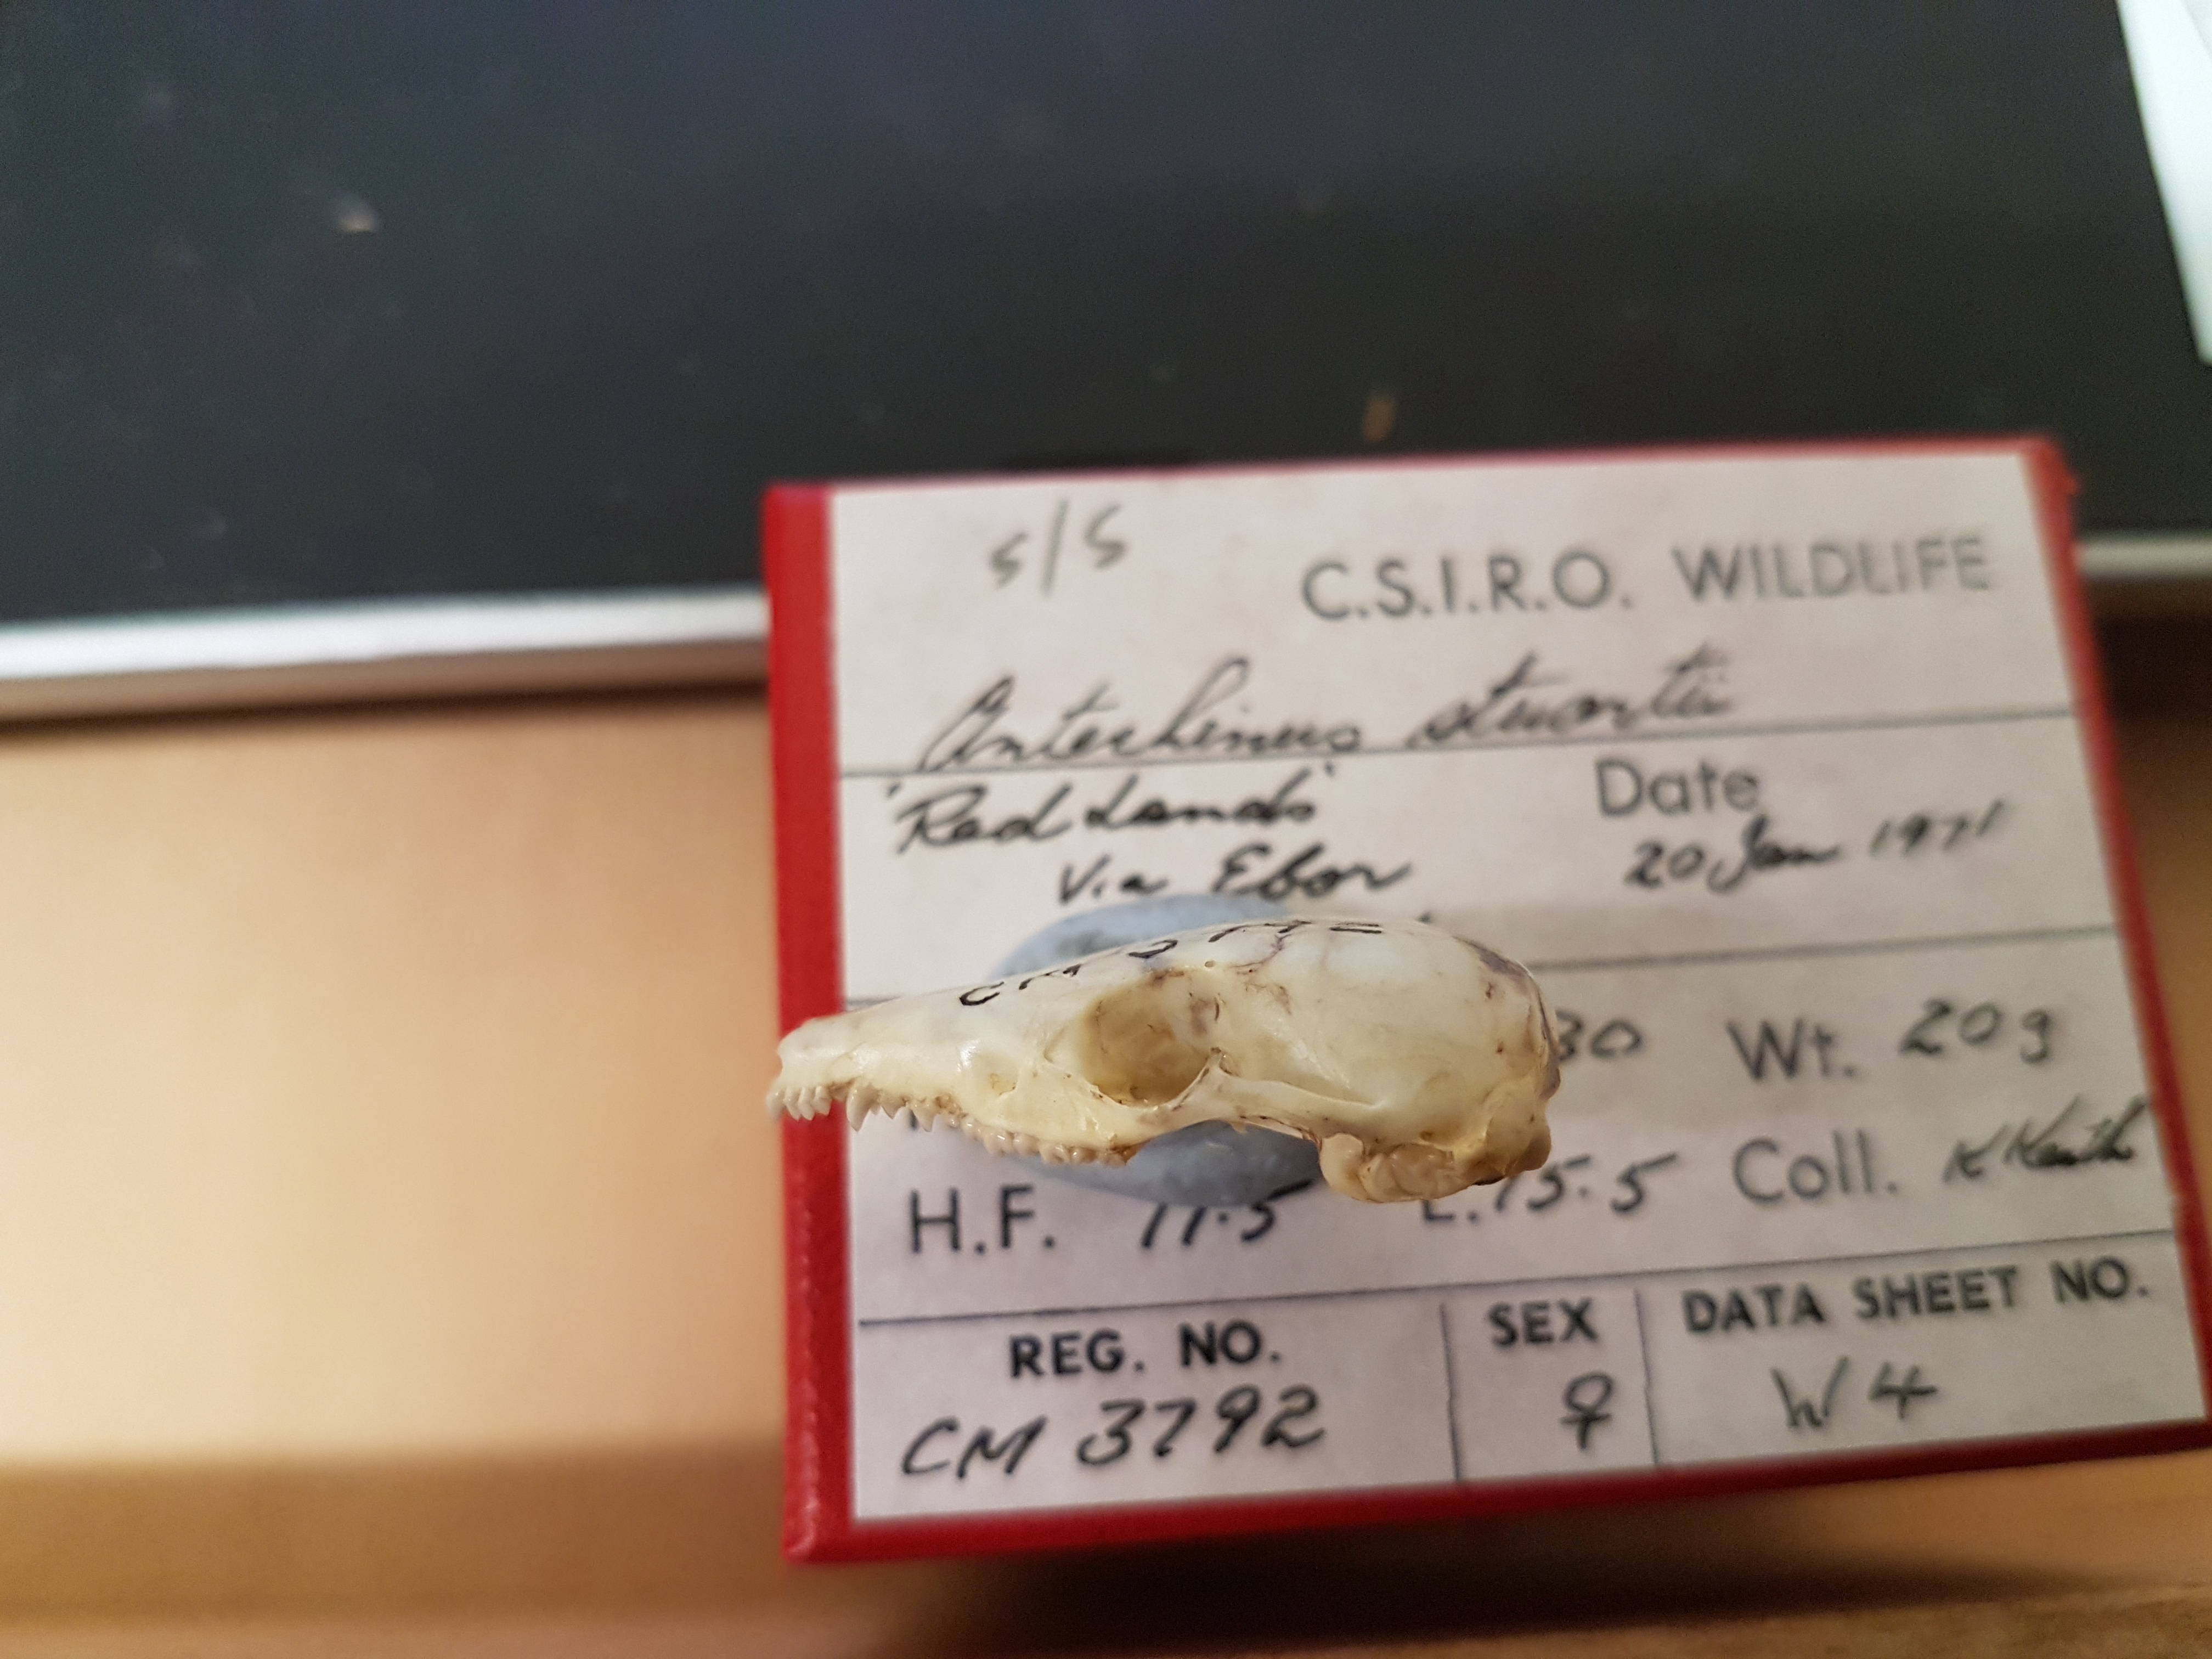 s/s
C.S.I.R.O. WILDLIFE
Antechinus stuartii
'Red Lands'
Via Ebor
Date
20 Jan 1971
CM
30 Wt. 20g
H.F. 17.5 E. 15.5 Coll. K Keith
REG. NO. SEX DATA SHEET NO.
CM 3792 ♀ W4